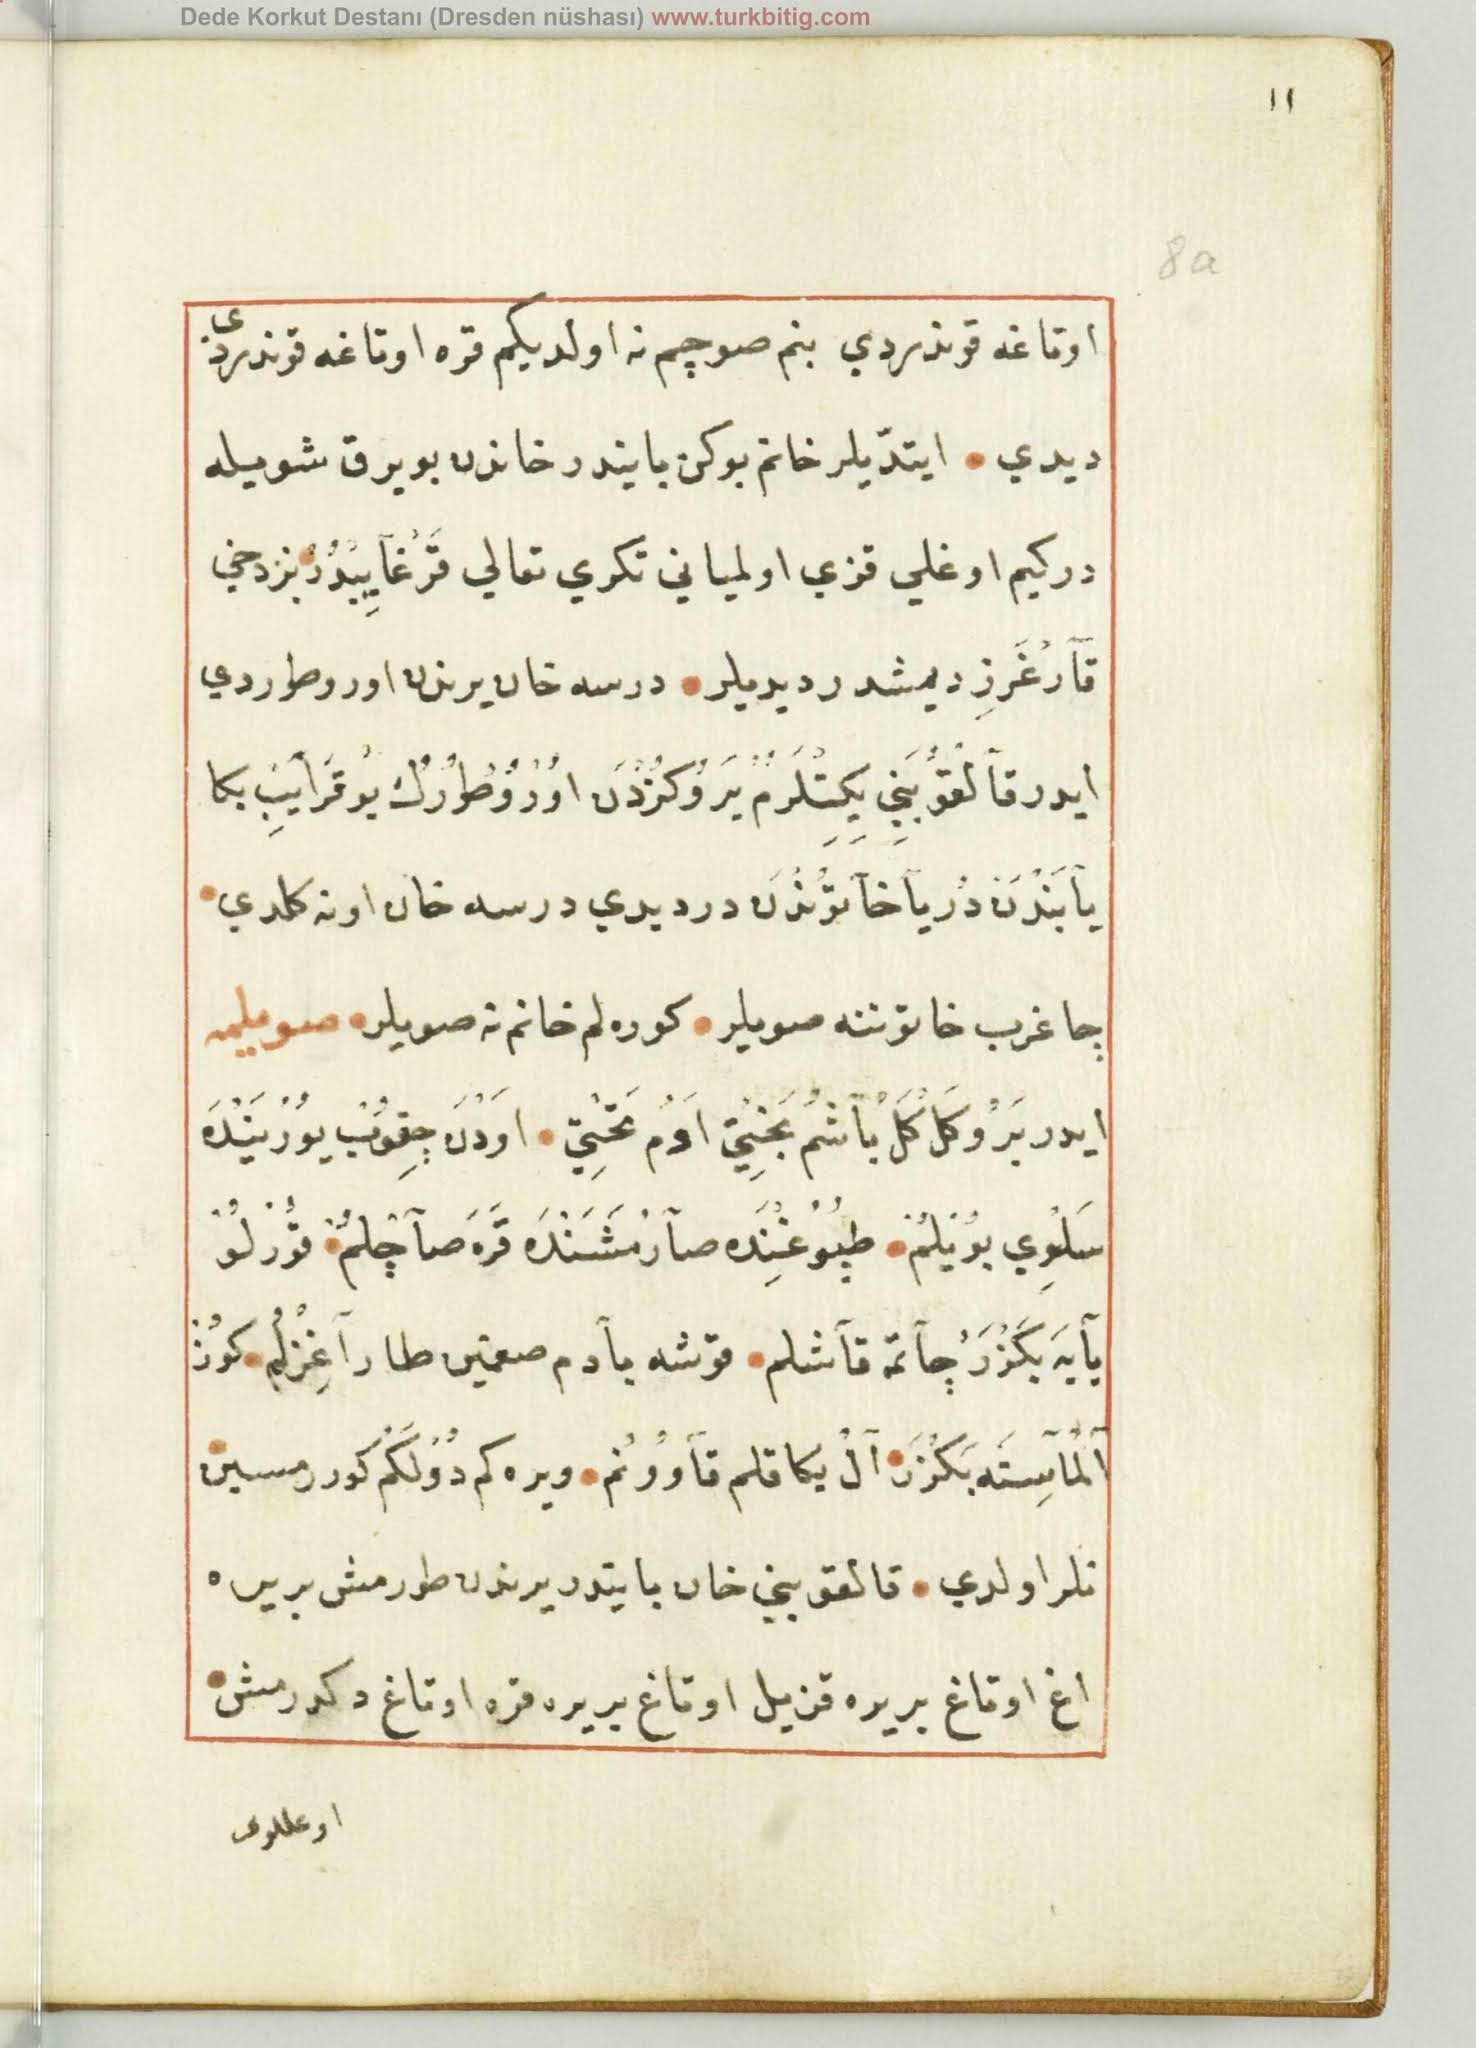 Dede Korkut Destanı (Dresden nüshası) www.turkbitig.com
١١
8a
اوتاغه قوندردي بنم صوچم نه اولديكم قره اوتاغه قوندردى
ديدي • ايتدّيلر خانم بوكن بايندر خاندن بويرق شويله
دركيم اوغلي قزي اولمياني تكري تعالي قَرْغَايِبْدُرْ بزدخي
قآرغَرِز ديمشدر ديديلر • درسه خان يرندن اوروطوردي
ايدر قآلْقوُبَنِي يِكِتْلَرُمْ يَرُوكُزْدَنْ اوُرُوُطوُرُكْ بُو قَرَايِبِ بكا
يآبَنْدَنْ دُرْيآ خآتوُنْدَنْ در ديدي درسه خان اونه كلدي •
چاغرب خاتوننه صويلر • كوره لم خانم نه صويلر • صويلمه
ايدر بَرُو كَلْ كَلْ بآشُمْ بَخْتِي اَوُمْ تَخْتِي • اَوْدَنْ چِقوُبْ يوُرْيَنْدَه
سَلْوِي بوُيْلُمْ • طپُوُغِنْدَه صآرْمَشَنْدَه قَرَه صآچْلُمْ • قوُرْلوُ
يآيَه بَكْزَرْ چآتمَه قآشلم • قوشه بآدم صغمين طار آغِزْلُمْ • كوُزْ
آلْمآسِنَه بَكْزَرْ • آلْ يكاقلم قآوُوُنُم • ويره كم دُوُلَكُمْ كورر مسين
نلر اولدي • قالقوبني خان بايندر يرندن طورمش بريره
اغ اوتاغ بريره قزيل اوتاغ بريره قره اوتاغ دكدرمش •
اوغللوى